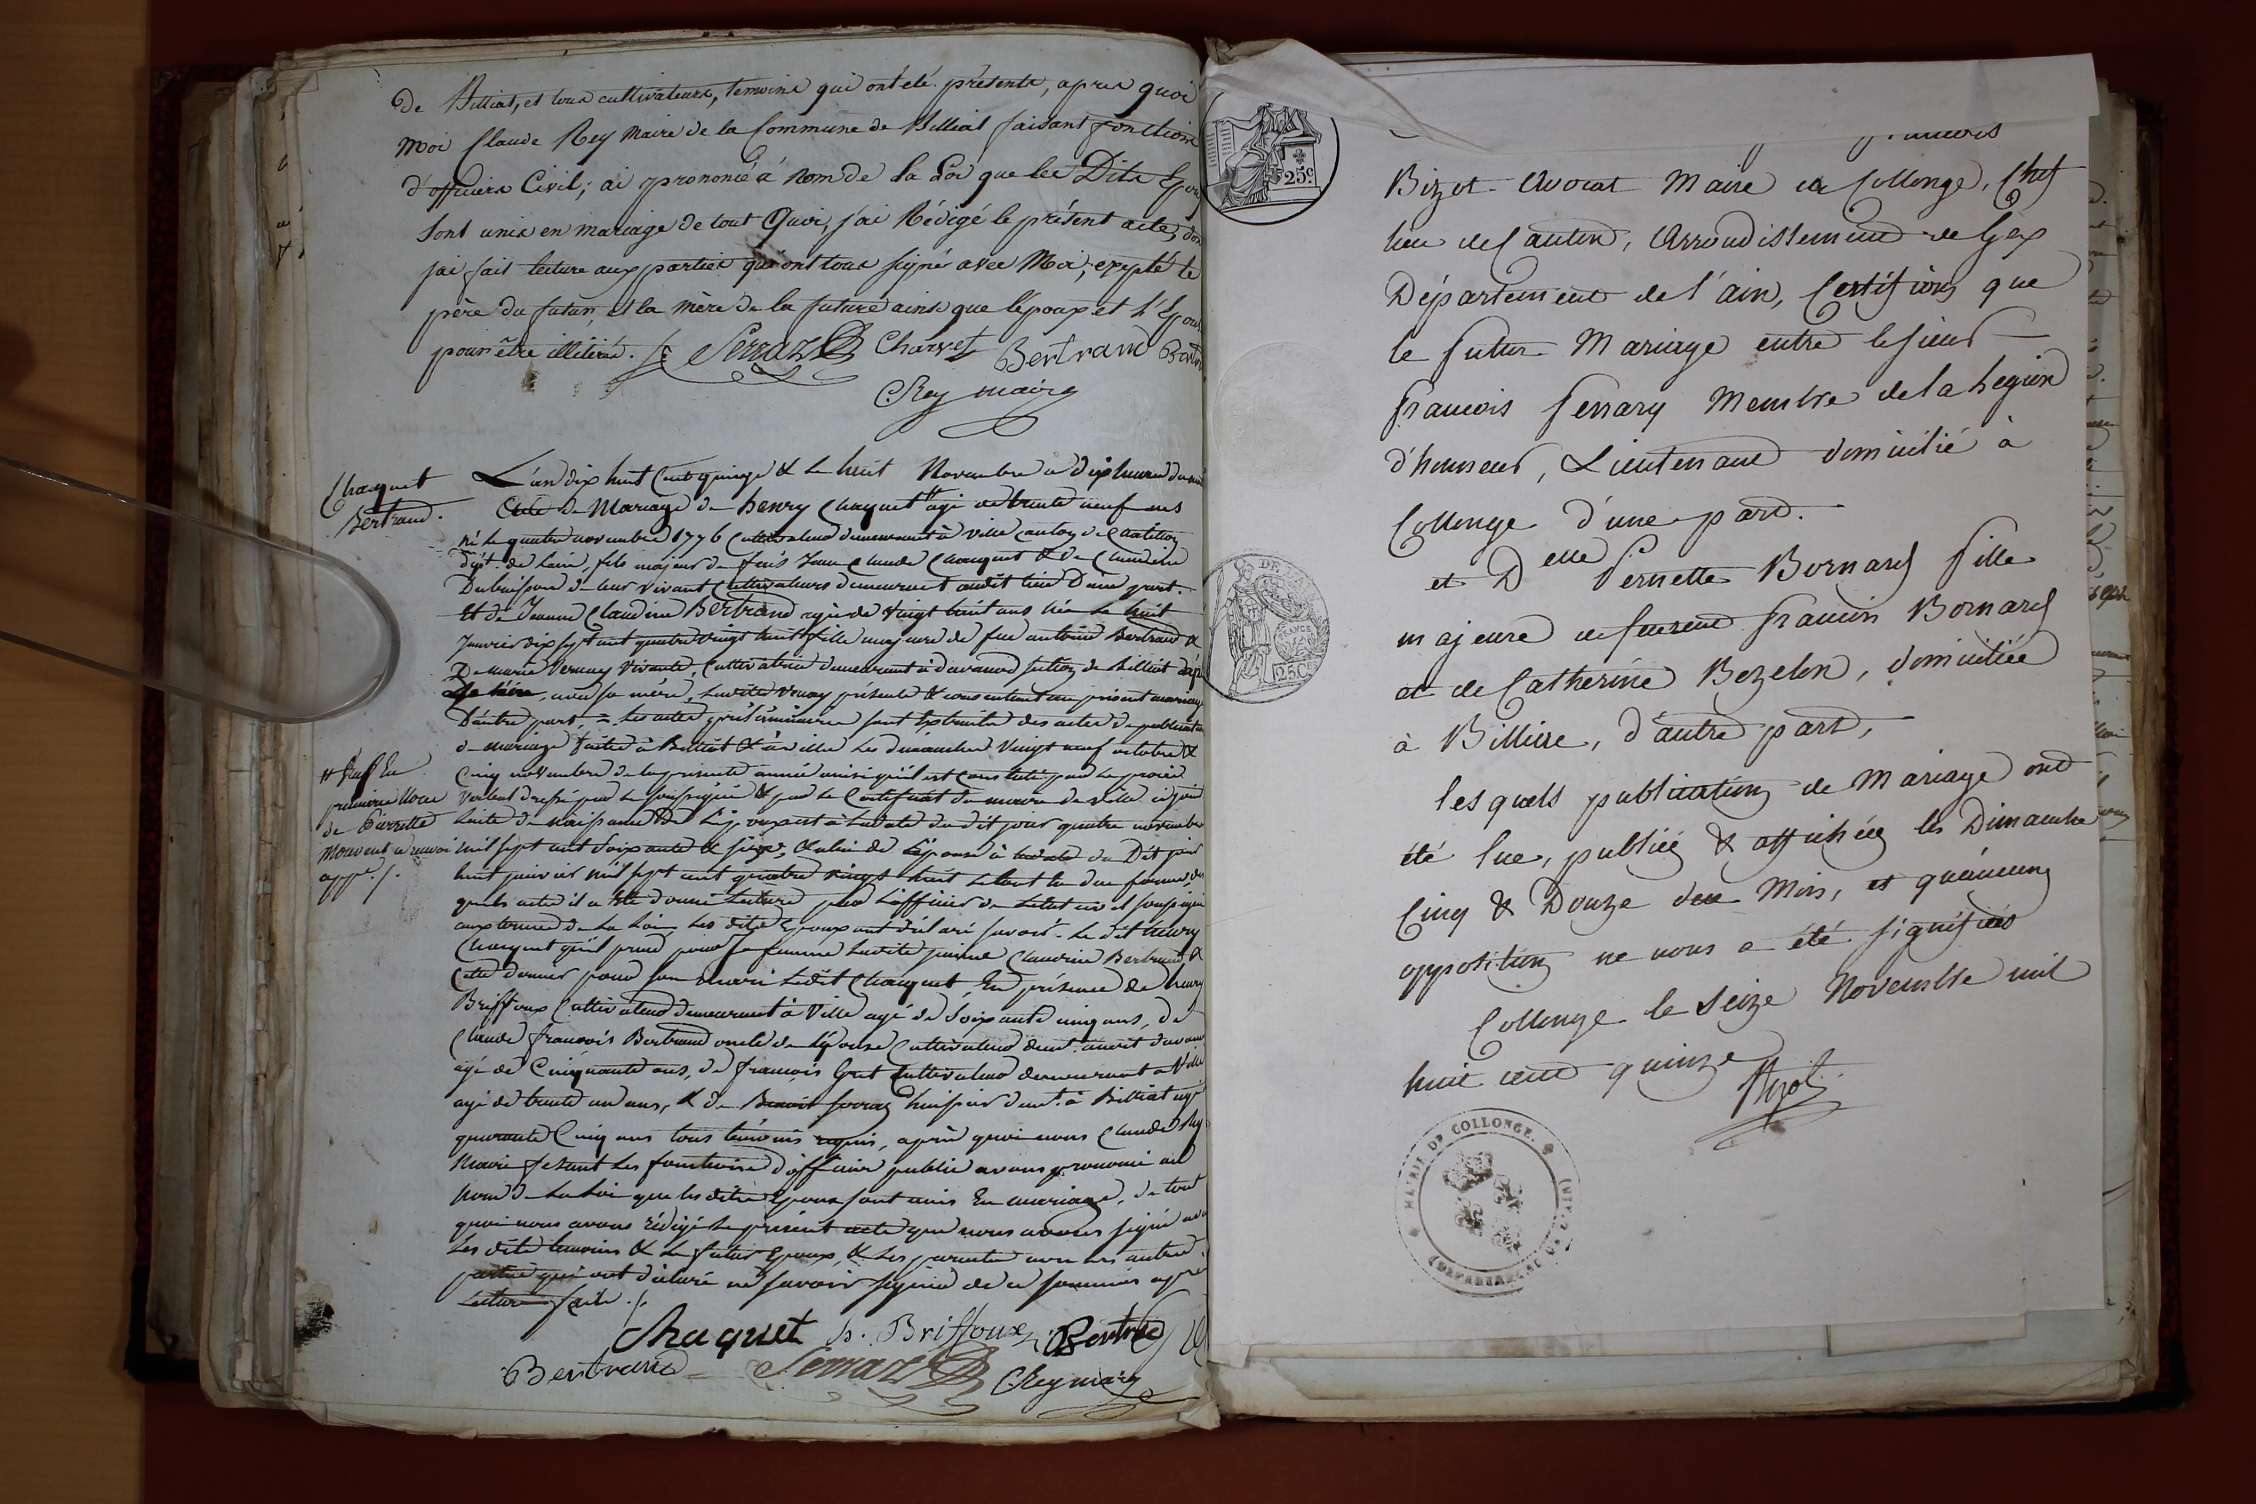 de Billiat, et tous cultivateurs, temoins qui ont été présents, apres quoi
Moi Claude Rey Maire de la Commune de Billiat faisant fonctions
d'officiers Civil; ai prononcé à nom de la Loi que les Dits Epoux
sont unis en mariage de tout Quoi, j'ai Rédigé le présent acte, dont
j'ai fait lecture aux parties qui ont tous signé avec Moi; exepté le
père du futur, et la mère de la future ainsi que l'époux et l'Epouse
pour être illitéré. Serraz Charvet Bertrand
CRey maire
Chaquet
Bertrand.
L'an dix huit Cent quinze & le huit Novembre a dix heures du matin
Acte de Mariage de henry Chaquet # agé de trente neuf ans
né le quatre novembre 1776 Cultivateur demeurant à Ville Canton de Chatillon
dépt. de Lain, fils majeur de feüs Jean Claude Chaquet & de Claudine
Dubuisson de leur vivant Cultivateurs demeurant audit lieu D'une part.
Et de Jeanne Claudine Bertrand agée de Vingt huit ans née Le huit
Janvier dix sept cent quatre vingt huit fille majeure de feu antoine Bertrand &
De marie Vernay Vivante, Cultivatrice demeurant à davanod section de Billiat
avec sa mère, Ladite Vernay présente & consentant au présent mariage
D'autre part, = Les actes préliminaires sont Extraits des actes de publication
de mariage faites à Billiat & à ville les dimanches Vingt neuf octobre &
Cinq novembre de la présente année ainsi qu'il est constaté par Le procès
Verbal dressé par Le soussigné & par Le Certificat du maire de Ville ci joint
L'acte de naissance de L'Epoux est à La date du dit jour quatre novembre
mil sept cent Soixante & seize, Celui de L'épouse à La date du Dit jour
huit janvier mil sept cent quatre vingt huit Le tout En due forme, des
quels actes il a Eté donné Lecture par L'officier de Létat civil soussigné
aux termes de La Loi, Les dits Epoux ont déclaré savoir. Le dit henry
Chaquet qu'il prend pour sa femme Ladite jeanne Claudine Bertrand &
Cette dernier pour son mari Ledit Chaquet, En présence de henry
Briffoux Cultivateur demeurant à Ville agé de Soixante cinq ans, de
Claude françois Bertrand oncle de L'épouse Cultivateur demt. audit davanod
agé de Cinquante ans, de françois Gret Cultivateur demeurant à Ville
agé de trente un ans, & de Benoit Serraz huissier demt. à Billiat agé
quarante Cinq ans tous témoins requis, après quoi nous Claude Rey
Maire fesant Les fonctions d'officier public avons prononcé au
Nom de La Loi que les dits Epoux sont unis En mariage, de tout
quoi nous avons rédigé Le présent acte que nous avons signé avec
Les dits temoins & Le futur Epoux, & Les parents avec les autres
parties qui ont déclaré ne savoir signer de ce sommés après
Lecture faite ./.
# Veuf En
premiere Noces
de Pierrette
Mouvent ce renvoi
appé. /.
Chaquet h. Briffoux Bertrand
Bertrand = Serraz CRey maire
25c.
25C.
FRANCE
françois
Bizot Avocat Maire de Collonge, Chef
lieu de Canton, Arrondissement de Gex
Département de l'ain, Certifions que
le futur Mariage entre le sieur
françois ferrary Membre de la Legion
d'honneur, Lieutenant domicilié à
Collonge d'une part.
et Delle Pernette Bornard fille
majeure de feu françois Bornard
et de Catherine Bezelon, domiciliée
à Billiere, d'autre part,
les quels publication de Mariage ont
été lue, publiée & affichée les Dimanche
Cinq & Douze du Mois, et qu'aucune
opposition ne nous a été signifiées
Collonge le Seize Novembre mil
huit cent quinze
Bizot
MAIRIE DE COLLONGE.
(DEPARTEMENT DE L'AIN)